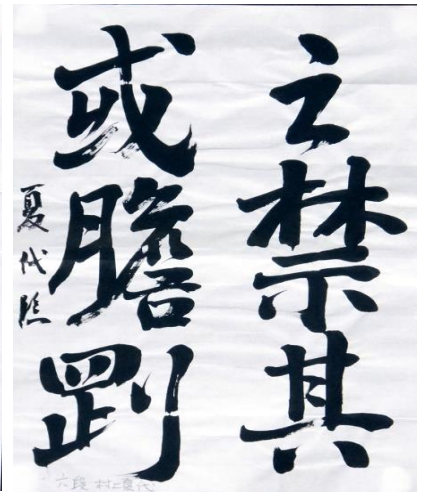 之禁其
或膽剛
夏代臨
六段 村上夏代